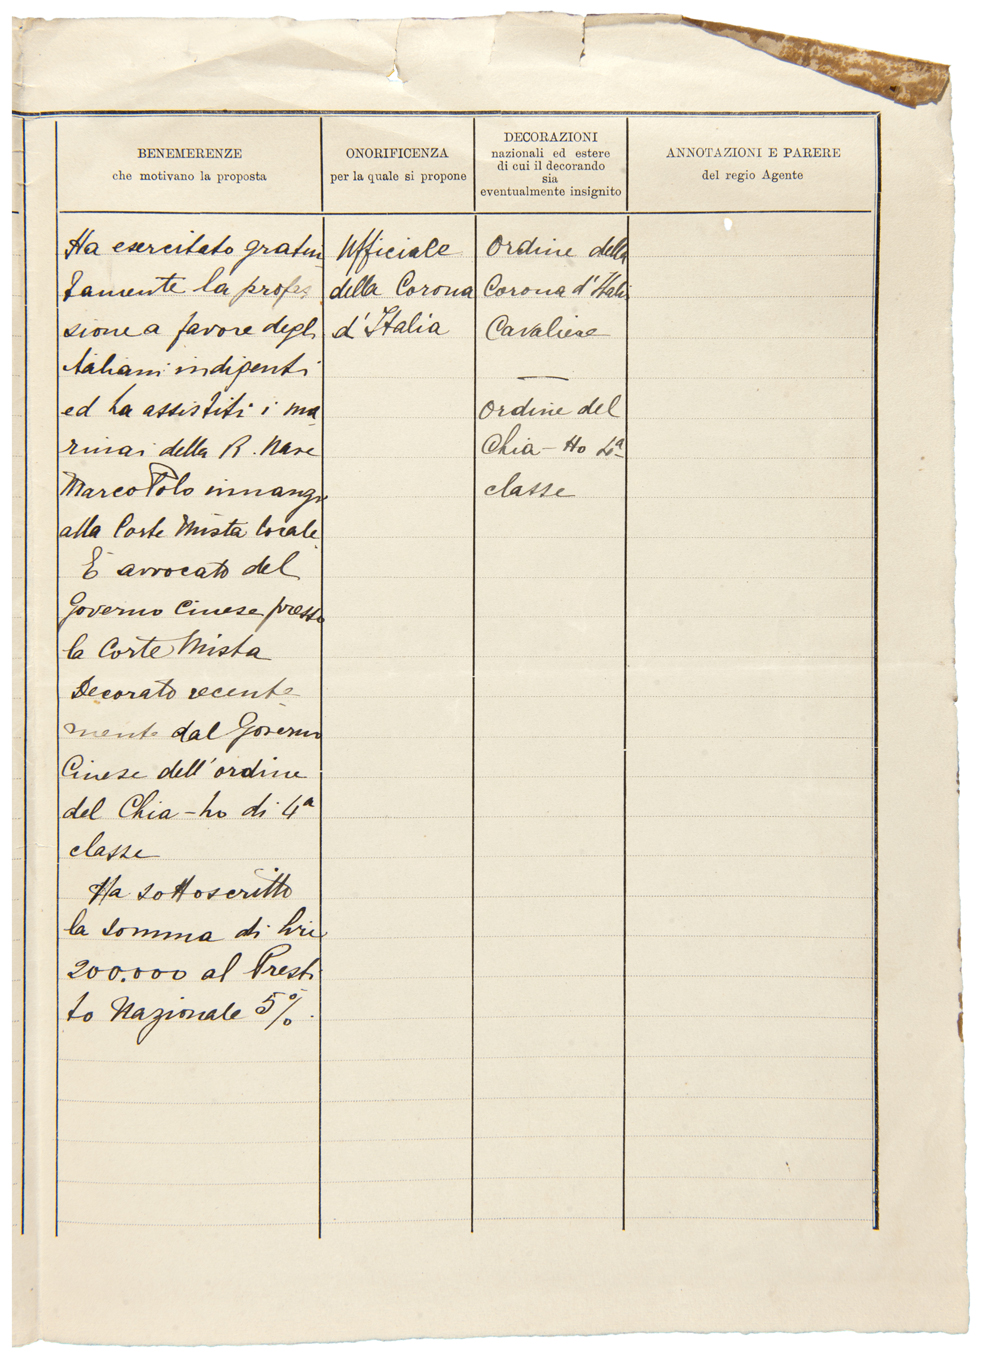 BENEMERENZE
che motivano la proposta
ONORIFICENZA
per la quale si propone
DECORAZIONI
nazionali ed estere
di cui il decorando
sia
eventualmente insignito
ANNOTAZIONI E PARERE
del regio Agente
Ha esercitato gratui
tamente la profes
sione a favore degli
italiani indigenti
ed ha assistiti i ma
rinai della R. Nave
Marco Polo innanzi
alla Corte Mista locale
È avvocato del
Governo Cinese presso
la Corte Mista
Decorato recente
mente dal Governo
Cinese dell'ordine
del Chia-ho di 4ª
classe
Ha sottoscritto
la somma di lire
200.000 al Presti
to Nazionale 5%.
Ufficiale
della Corona
d'Italia
Ordine della
Corona d'Italia
Cavaliere
Ordine del
Chia-Ho 4ª
classe